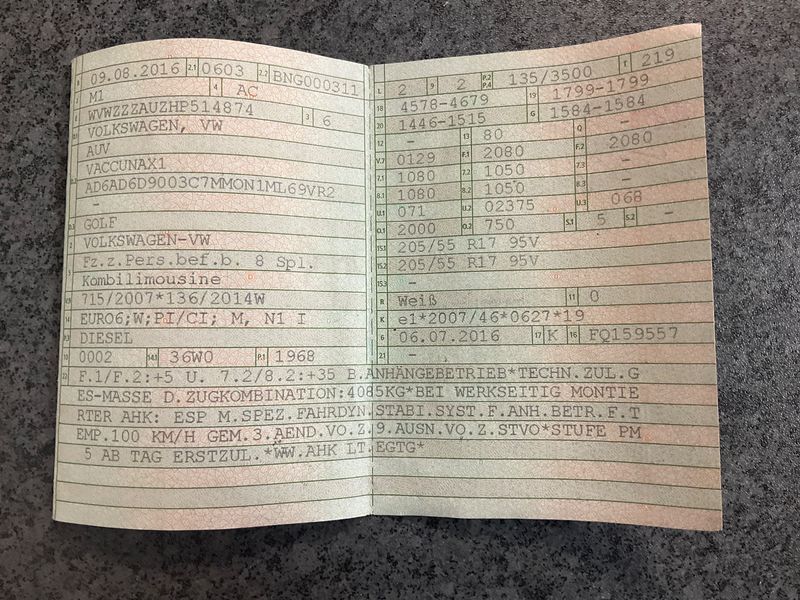 09.08.2016 2.1 0603 2.2 BNG000311
M1 4 AC
WVWZZZAUZHP514874 3 6
VOLKSWAGEN, VW
AUV
VACCUNAX1
AD6AD6D9003C7MMON1ML69VR2
–
GOLF
VOLKSWAGEN-VW
Fz.z.Pers.bef.b. 8 Spl.
Kombilimousine
715/2007*136/2014W
EURO6;W;PI/CI; M, N1 I
DIESEL
10 0002 14.1 36W0 P.1 1968
L 2 9 2 P.2 P.4 135/3500 T 219
18 4578-4679 19 1799-1799
20 1446-1515 G 1584-1584
12 – 13 80 Q –
V.7 0129 F.1 2080 F.2 2080
7.1 1080 7.2 1050 7.3 –
8.1 1080 8.2 1050 8.3 –
U.1 071 U.2 02375 U.3 068
O.1 2000 O.2 750 S.1 5 S.2 –
15.1 205/55 R17 95V
15.2 205/55 R17 95V
15.3 –
R Weiß 11 0
K e1*2007/46*0627*19
6 06.07.2016 17 K 16 FQ159557
21 –
22 F.1/F.2:+5 U. 7.2/8.2:+35 B.ANHÄNGEBETRIEB*TECHN.ZUL.G
ES-MASSE D.ZUGKOMBINATION:4085KG*BEI WERKSEITIG MONTIE
RTER AHK: ESP M.SPEZ.FAHRDYN.STABI.SYST.F.ANH.BETR.F.T
EMP.100 KM/H GEM.3.AEND.VO.Z.9.AUSN.VO.Z.STVO*STUFE PM
5 AB TAG ERSTZUL.*WW.AHK LT.EGTG*